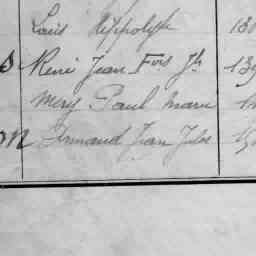 Louis Hippolyte 18
s René Jean Fois Jh 139
Mery Paul Marie 1
on Armand Jean Jules 19